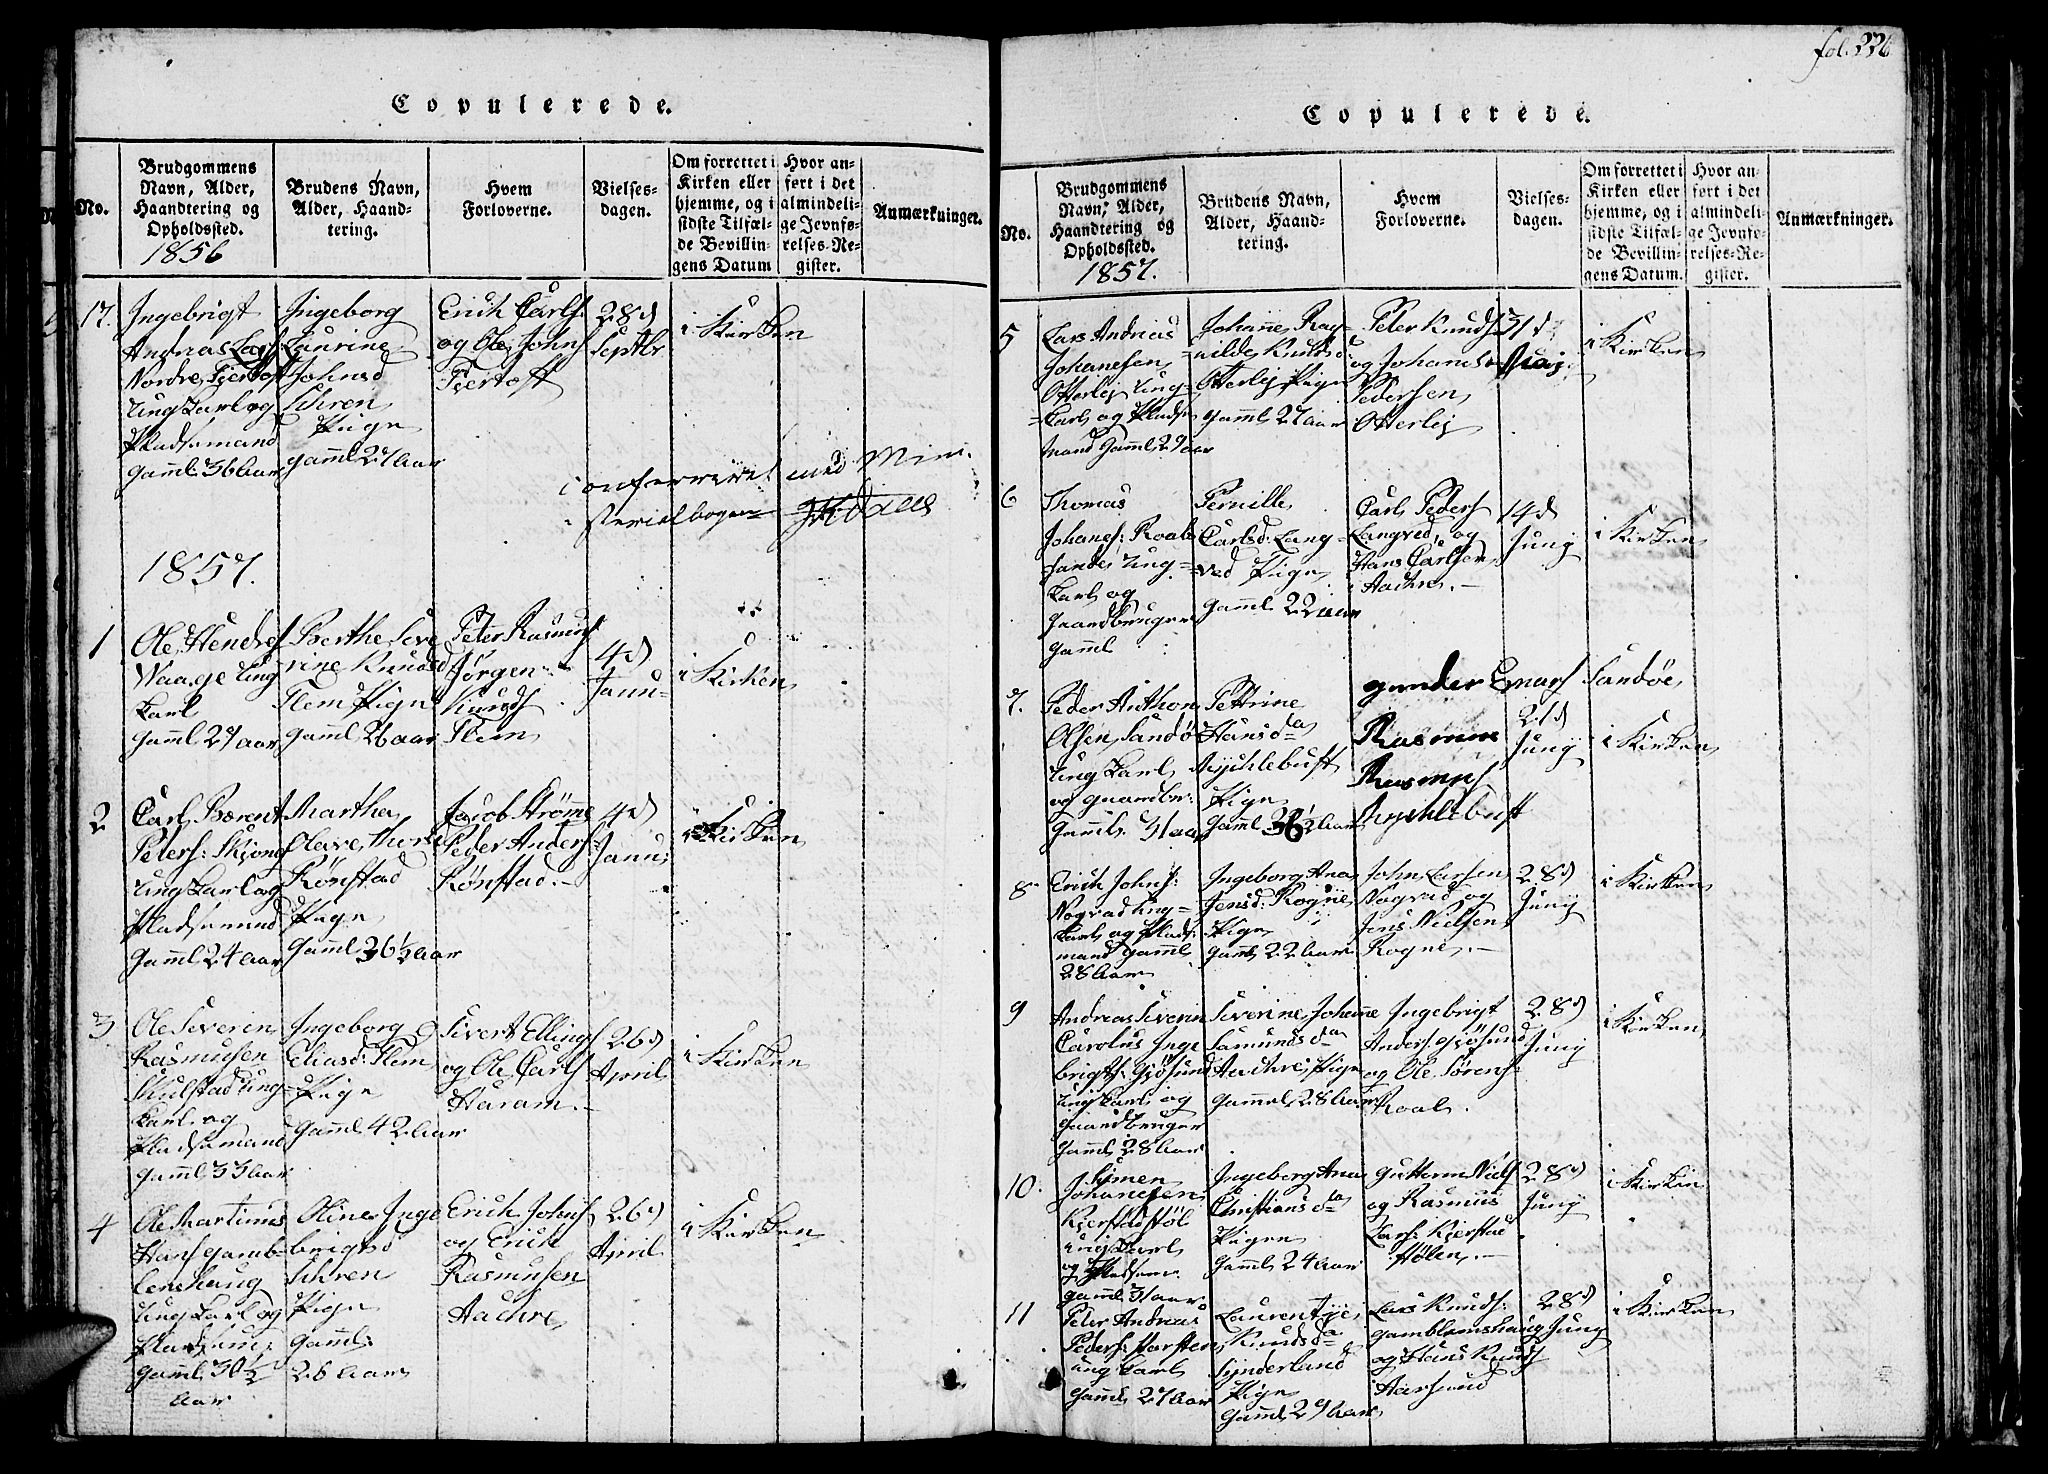 fol. 226
Copulerede.
No.
Brudgommens
Navn, Alder,
Haandtering og
Opholdssted.
1856
Brudens Navn,
Alder, Haand-
tering.
Hvem
Forloverne.
Vielses-
dagen.
Om forrettet i
Kirken eller
hjemme, og i
sidste Tilfæl-
de Bevillin-
gens Datum
Hvor an-
ført i det
almindeli-
ge Jevnfø-
relses-Re-
gister.
Anmærkninger.
17.
Ingebrigt
Andreas Larss:
Nordre Fjertoft
Ung Karl og
Pladsemand
gaml 36 Aar
Ingeborg
Laurine
Johnsd
Sehren
Pige
gaml 27 Aar
Erich Carls
og Ole Johns
Fjertoft
28d
Septbr
i Kirken
Conferreret med Mini-
sterialbogen
1857.
1
Ole Hendrs
Waage Ung
Karl
gaml 27 aar
Berthe Seve
rine Knudsd
Flem Pige
gaml 26 aar
Peter Rasmus
Jørgen
Knuds
Flem
4d
Janu
i Kirken
2
Carl Bærent
Peters: Skjong
Ung Karl og
Pladsemand
Gaml 24 Aar
Martha
Olave Thors
Rønstad
Pige
Gaml 36½ Aar
Jacob Strømme
Peder Anders:
Rønstad.
4d
Janu:
i Kirken
3
Ole Severin
Rasmusen
Skulstad Ung-
Karl og
Pladsemand
gaml 33 Aar
Ingeborg
Eliasd: Flem
Pige
gaml 42 Aar
Sivert Ellings
og Ole Carls
Haram.
26d
April
i Kirken
4
Ole Martinus
Hans gamb-
lemshaug
Ung Karl og
Pladsem:
gaml 30½
Aar
Oline Inge
brigtsd
Sehren
Pige
gaml:
26 Aar
Erich Johns
og Erich
Rasmusen
Aachre
26d
April
i Kirken
Copulerede.
No.
Brudgommens
Navn, Alder,
Haandtering og
Opholdssted.
1857.
Brudens Navn,
Alder, Haand-
tering.
Hvem
Forloverne.
Vielses-
dagen.
Om forrettet i
Kirken eller
hjemme, og i
sidste Tilfæl-
de Bevillin-
gens Datum.
Hvor an-
ført i det
almindeli-
ge Jevnfø-
relses-Re-
gister.
Anmærkninger.
5
Lars Andreas
Johanesen
Otterlej Ung-
Karl og Pladse
mand Gaml 29 Aar
Johanne Rag-
nilde Knudsd
Otterlej Pige
gaml 27 aar
Peter Knuds
og Johans
Pedersen
Otterlej
31d
Maj
i Kirken
6
Thomas
Johanes: Roald-
sande Ung-
Karl og
gaardbruger
gaml
Pernille
Carlsd: Lang-
ved Pige
gaml 22 aar
Carl Peders
Langved, og
Hans Carlsen
Aachre.
14d
Junij
i Kirken
7.
Peder Anthon
Olsen, Sandø
Ung Karl
og gaardbr:
gaml 31 aar
Pettrine
Hansda
Mychlebust
Pige
gaml 36½ Aar
gunder Emars Sandøe
Rasmus
Rasmus
Mychlebust
21d
Junij
i Kirken
8
Erich Johns:
Vograd Ung-
Karl og Plads-
mand gaml
28 Aar
Ingeborg Ana
Jensd: Rogne
Pige
gaml 22 Aar
John Larsen
Vograd og
Jens Nielsen
Rogne.
28d
Junij
i Kirken
9
Andreas Severin
Carolus Inge
brigts: Gjøsund
Ung Karl og
gaardbruger
gaml 28 Aar
Severine Johanne
Samundsda
Aachre, Pige
gammel 28 Aar
Ingebrigt
Anders: gjøsund
og Ole Sørens
Roal.
28d
Junij
i Kirken
10.
Simen
Johanesen
Kjerstadstøl
ung Karl
og Pladsem:
gaml 31 aar
Ingeborg Ana
Christiansda
Pige
gaml 24 Aar
gutterm Niels
og Rasmus
Lars: Kjerstad
støl
28d
Junij
i Kirken
11
Peter Andreas
Peders: Harsten
ung Karl
gaml 27 Aar
Laurentze
Knudsda
Synderland
Pige
gaml 29 Aar
Lars Knuds:
gamblemshaug
og Hans Knuds
Aarsund
28d
Junij
i Kirken